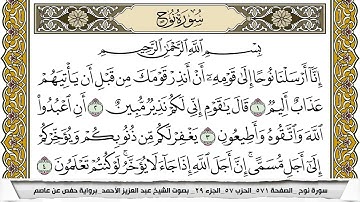 سُورَةُ نُوحٍ
بِسْمِ اللَّهِ الرَّحْمَٰنِ الرَّحِيمِ
إِنَّا أَرْسَلْنَا نُوحًا إِلَىٰ قَوْمِهِ أَنْ أَنذِرْ قَوْمَكَ مِن قَبْلِ أَن يَأْتِيَهُمْ
عَذَابٌ أَلِيمٌ ١ قَالَ يَٰقَوْمِ إِنِّي لَكُمْ نَذِيرٌ مُّبِينٌ ٢ أَنِ اعْبُدُوا
اللَّهَ وَاتَّقُوهُ وَأَطِيعُونِ ٣ يَغْفِرْ لَكُم مِّن ذُنُوبِكُمْ وَيُؤَخِّرْكُمْ
إِلَىٰ أَجَلٍ مُّسَمًّى إِنَّ أَجَلَ اللَّهِ إِذَا جَاءَ لَا يُؤَخَّرُ لَوْ كُنتُمْ تَعْلَمُونَ ٤
سورة نوح _ الصفحة ٥٧١_ الحزب ٥٧_ الجزء ٢٩_ بصوت الشيخ عبد العزيز الأحمد_ برواية حفص عن عاصم